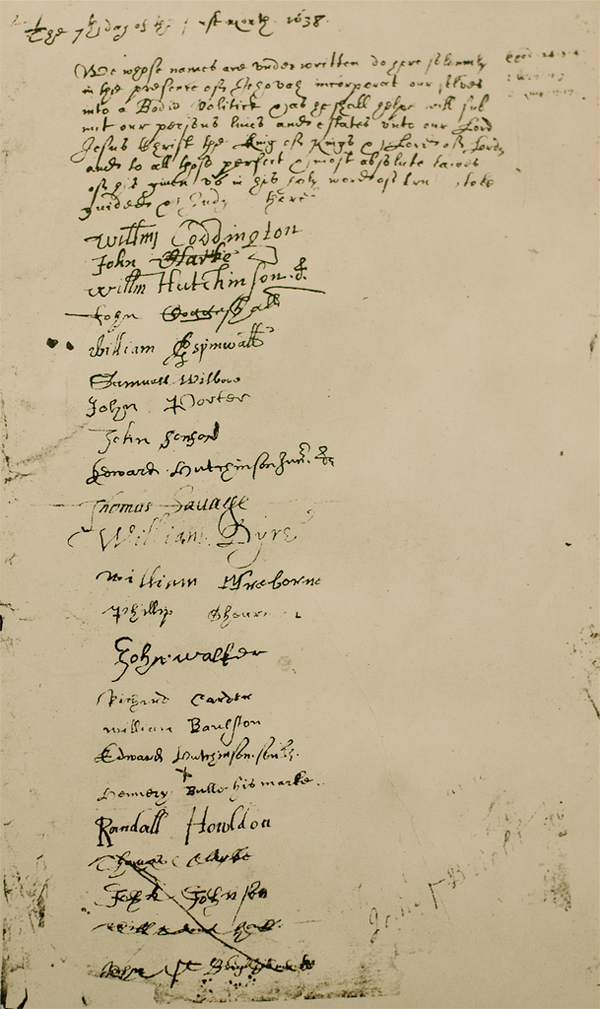 The 7th day of the first month 1638.
We whose names are underwritten do here solemnly
in the presence of Jehovah incorporat our selves
into a Bodie Politick & as he shall helpe will sub
mit our persons lives and estates unto our Lord
Jesus Christ the King of Kings & Lord of Lords
and to all those perfect & most absolute lawes
of his given us in his holy word of truth to be
guided & judged thereby
Willm Coddington
John Clarke
Willm Hutchinson
John Coggeshall
William Aspinwall
Samuell Wilbore
John Porter
John Sanford
Edward Hutchinson Junr
Thomas Savage
William Dyre
William Freborne
Phillip Shearman
John Walker
Richard Carder
William Baulston
Edward Hutchinson senr
Hennery Bull his marke
Randall Howldon
Thomas Clarke
John Johnson
William Hall
John Brightman